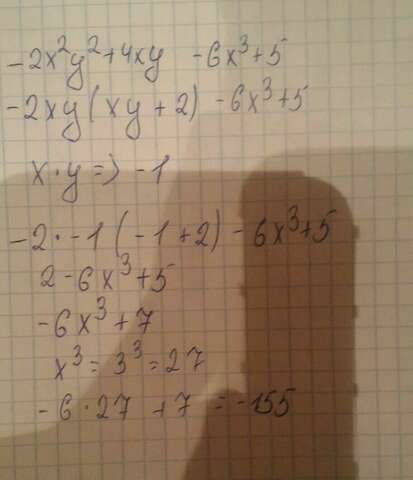 -2x²y²+4xy -6x³+5
-2xy(xy+2) -6x³+5
x·y=> -1
-2·-1(-1+2)-6x³+5
2-6x³+5
-6x³+7
x³=3³=27
-6·27 +7 =-155